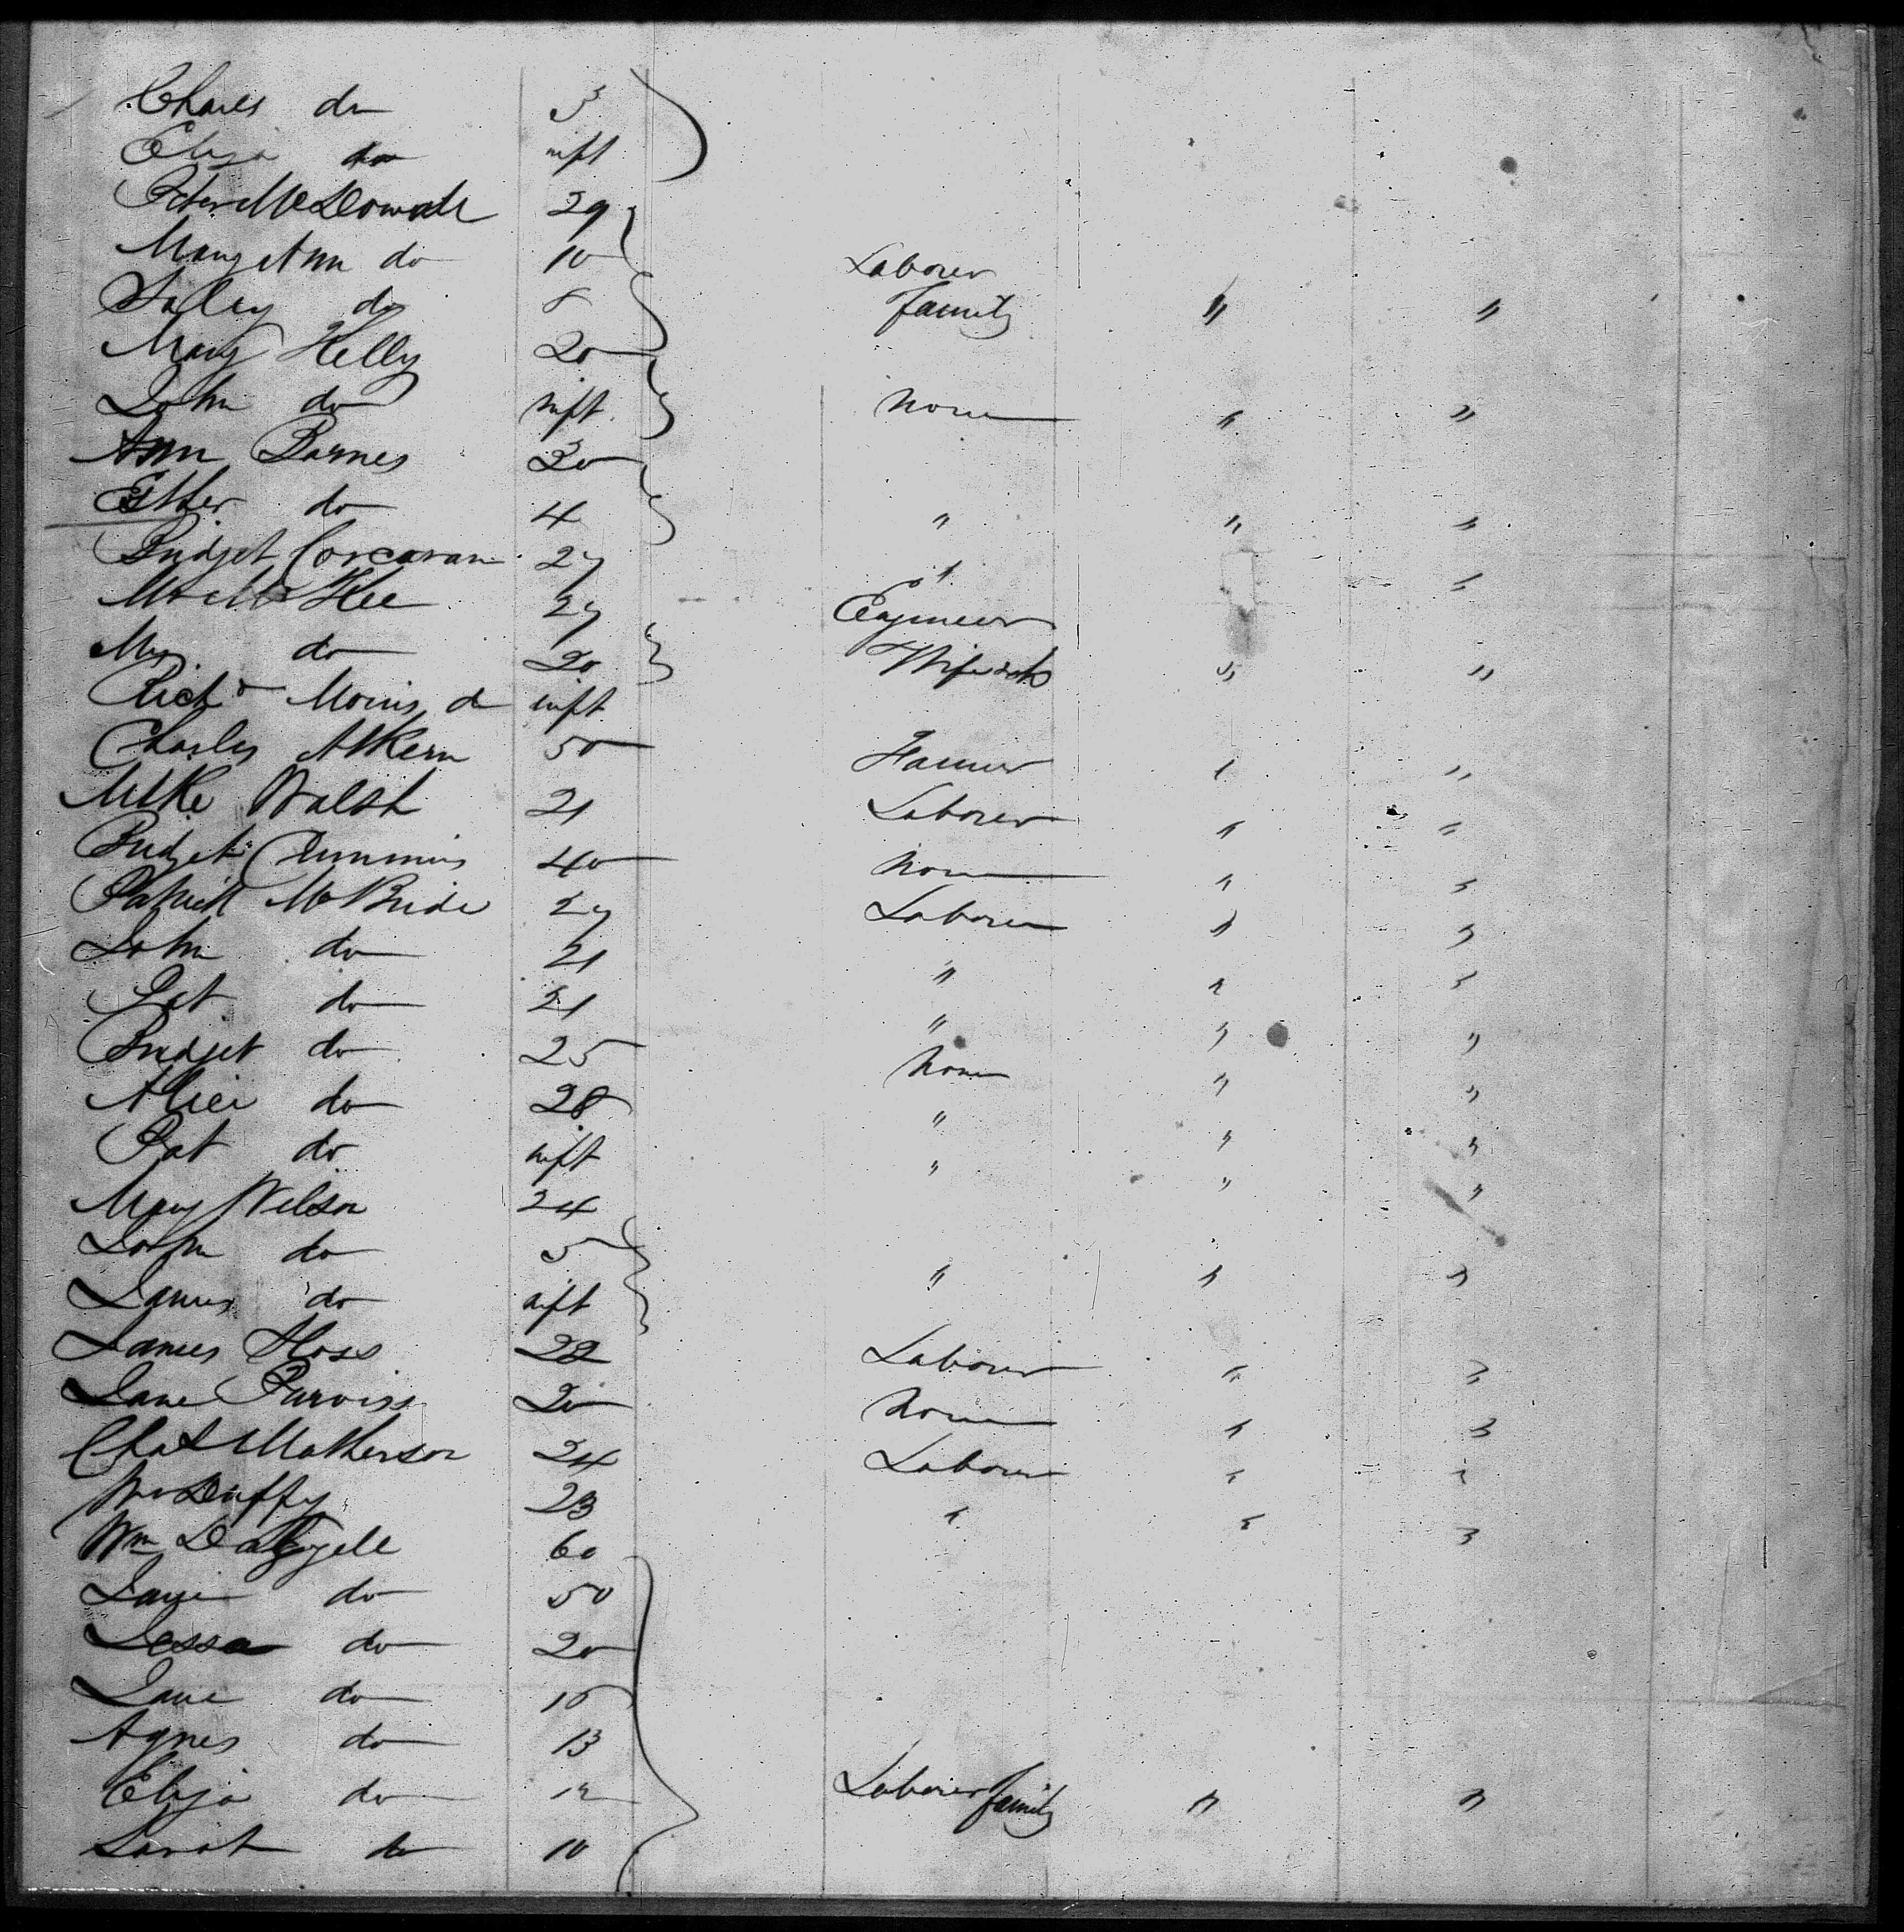 Charles do 3
Eliza do inft
Peter McDowall 29
Mary Ann do 10 Laborer
Salley do 8 Family " "
Mary Kelly 20
John do inft. None " "
Ann Barnes 30
Esther do 4 " " "
Bridget Corcoran 27 " "
Mr McKee 27 Engineer
Mrs do 20 Wife & ch " "
Richd Morris do inft
Charles Atkern 50 Farmer " "
Mike Walsh 21 Laborer " "
Bridget Cummins 40 None " "
Patrick McBride 27 Laborer " "
John do 21 " " "
Pat do 21 " " "
Bridget do 25 None " "
Alice do 28 " " "
Pat do inft " " "
Mary Wilson 24
John do 5 " " "
James do inft
James Hoss 22 Laborer " "
Jane Purviss 20 None " "
Chas Matherson 24 Laborer " "
Mr Duffy 23 " " "
Wm Dalzyell 60
Jane do 50
Jessa do 20
Jane do 15
Agnes do 13
Eliza do 12 Laborer Family " "
Sarah do 10